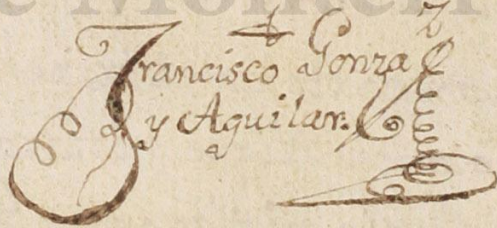 Francisco Gonza
y Aguilar.